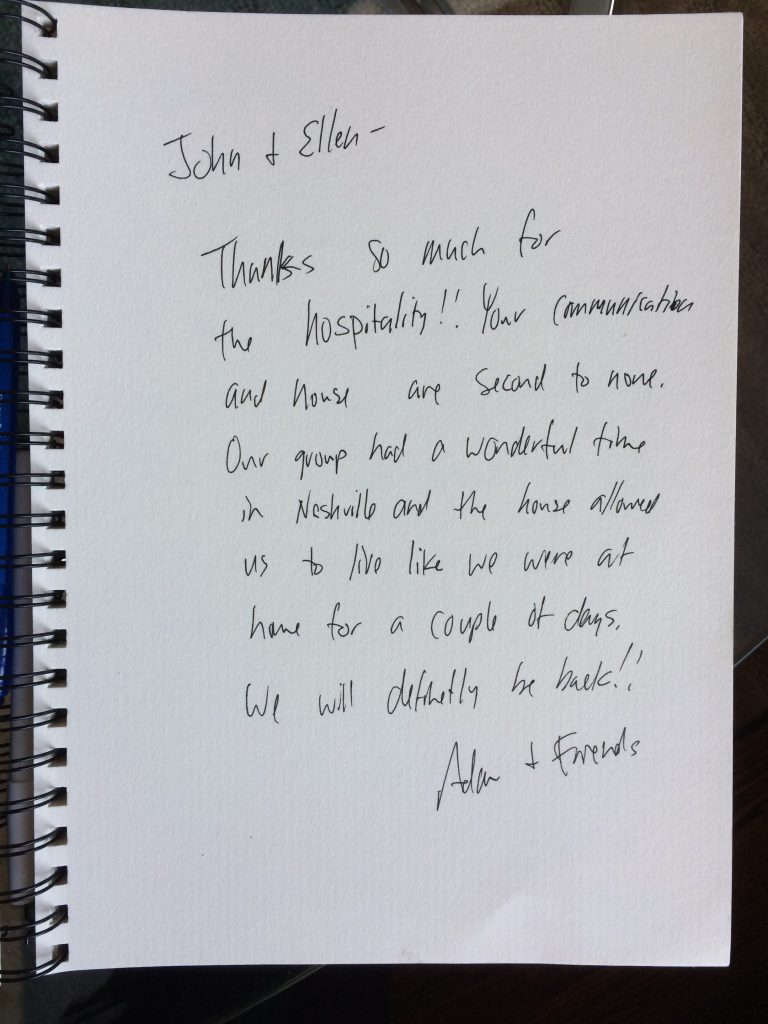 John + Ellen -
Thanks so much for
the hospitality!! Your communication
and house are second to none.
Our group had a wonderful time
in Nashville and the house allowed
us to live like we were at
home for a couple of days.
We will definetly be back!!
Adam + Friends